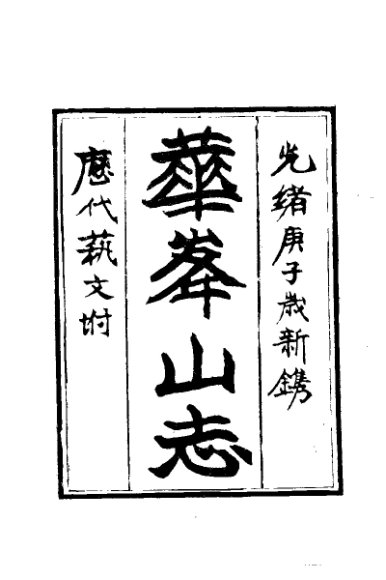 光緒庚子歲新鐫
華峯山志
歷代藝文坿